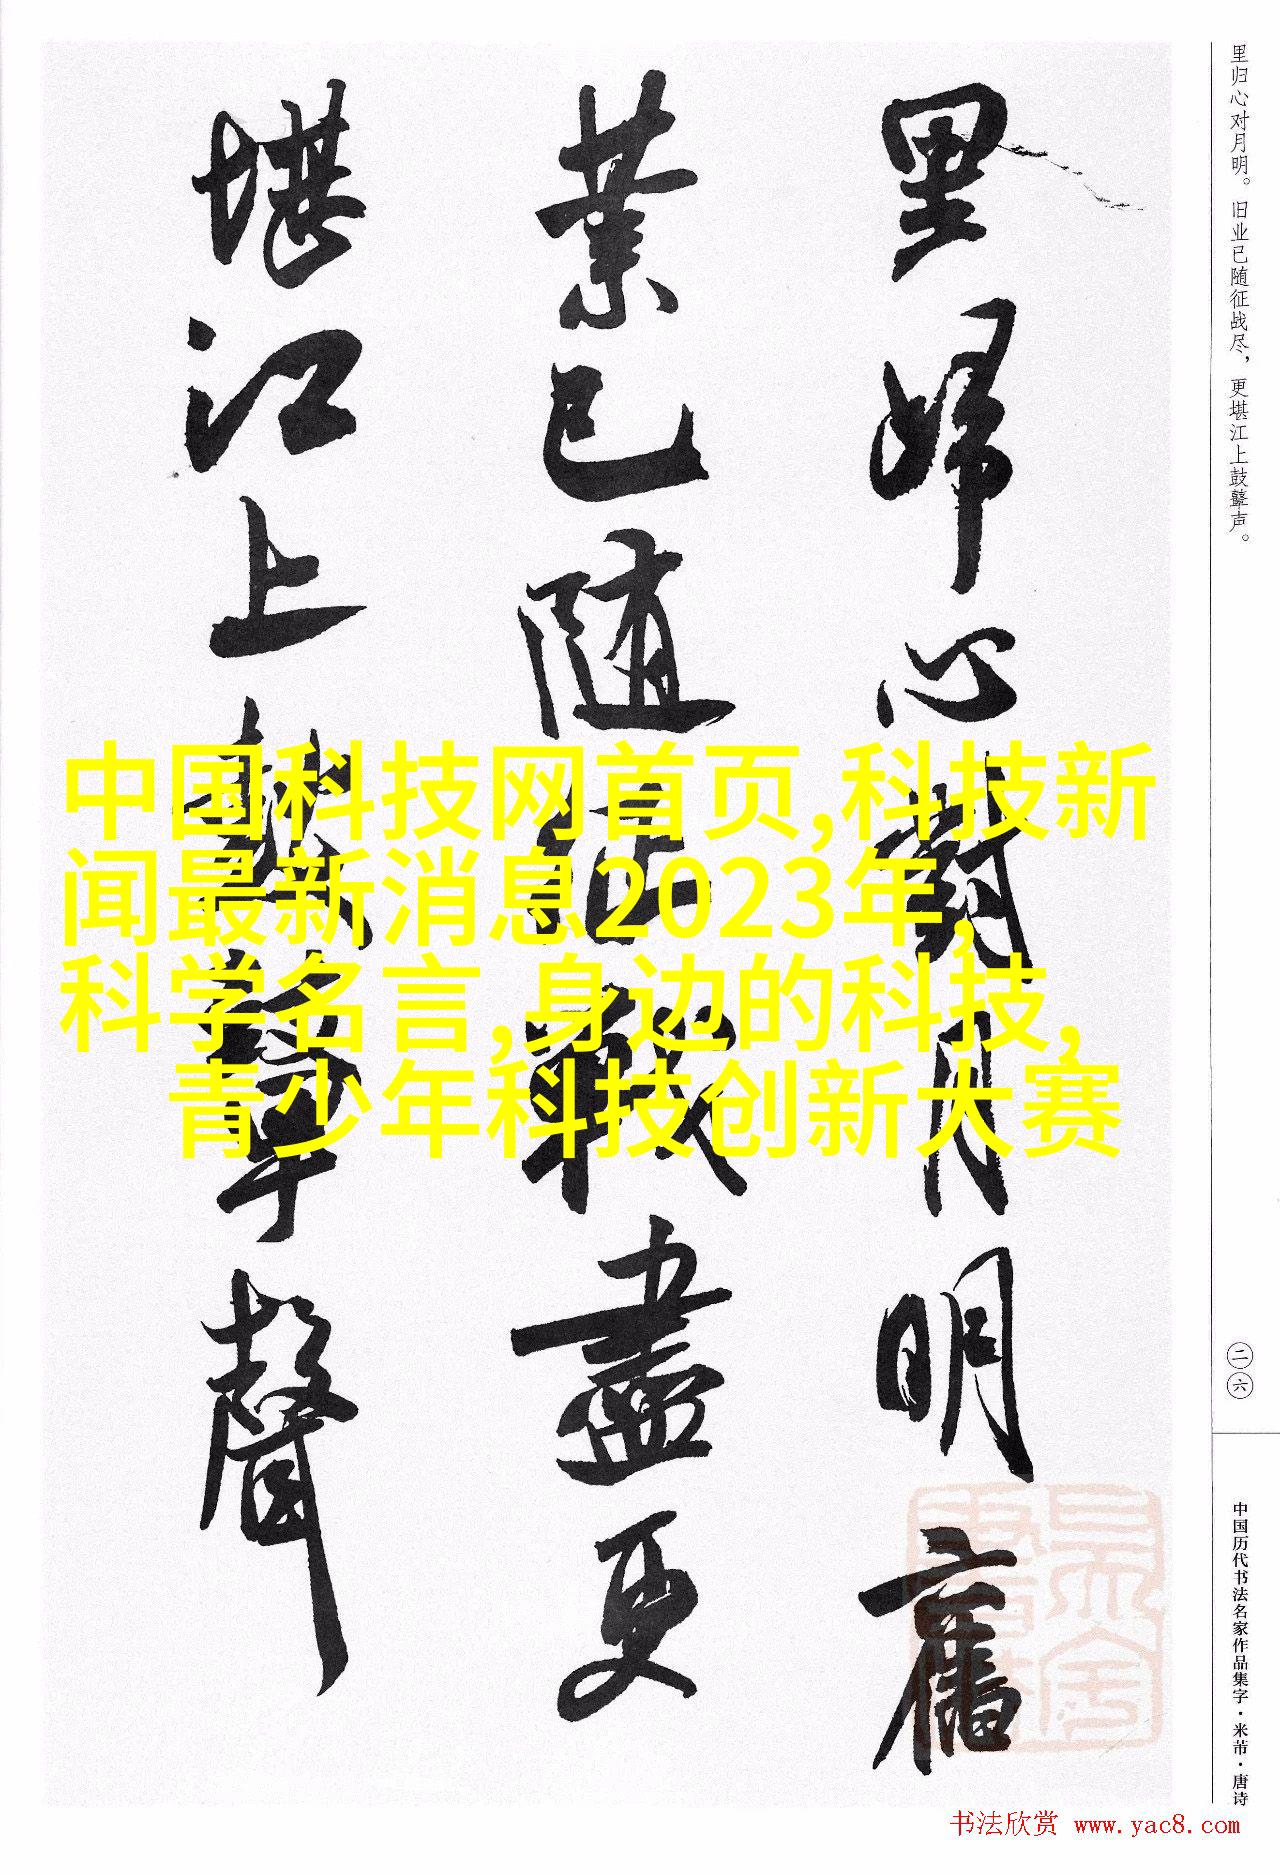 里归心对月明。旧业已随征战尽，更堪江上鼓鼙声。
里歸心對月明舊
業已隨征戰盡更
堪江上鼓鼙聲
中国科技网首页,科技新
闻最新消息2023年,
科学名言,身边的科技,
青少年科技创新大赛
二六
中国历代书法名家作品集字·米芾·唐诗
书法欣赏 www.yac8.com